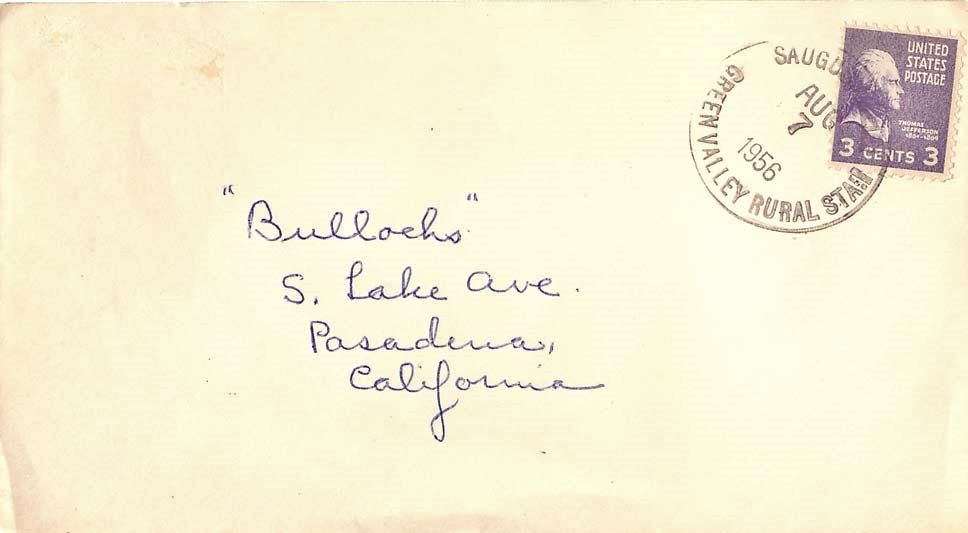 UNITED
STATES
POSTAGE
THOMAS
JEFFERSON
1801-1809
3 CENTS 3
AUG
7
1956
GREEN VALLEY RURAL STA.
"Bullocks"
S. Lake Ave.
Pasadena,
California